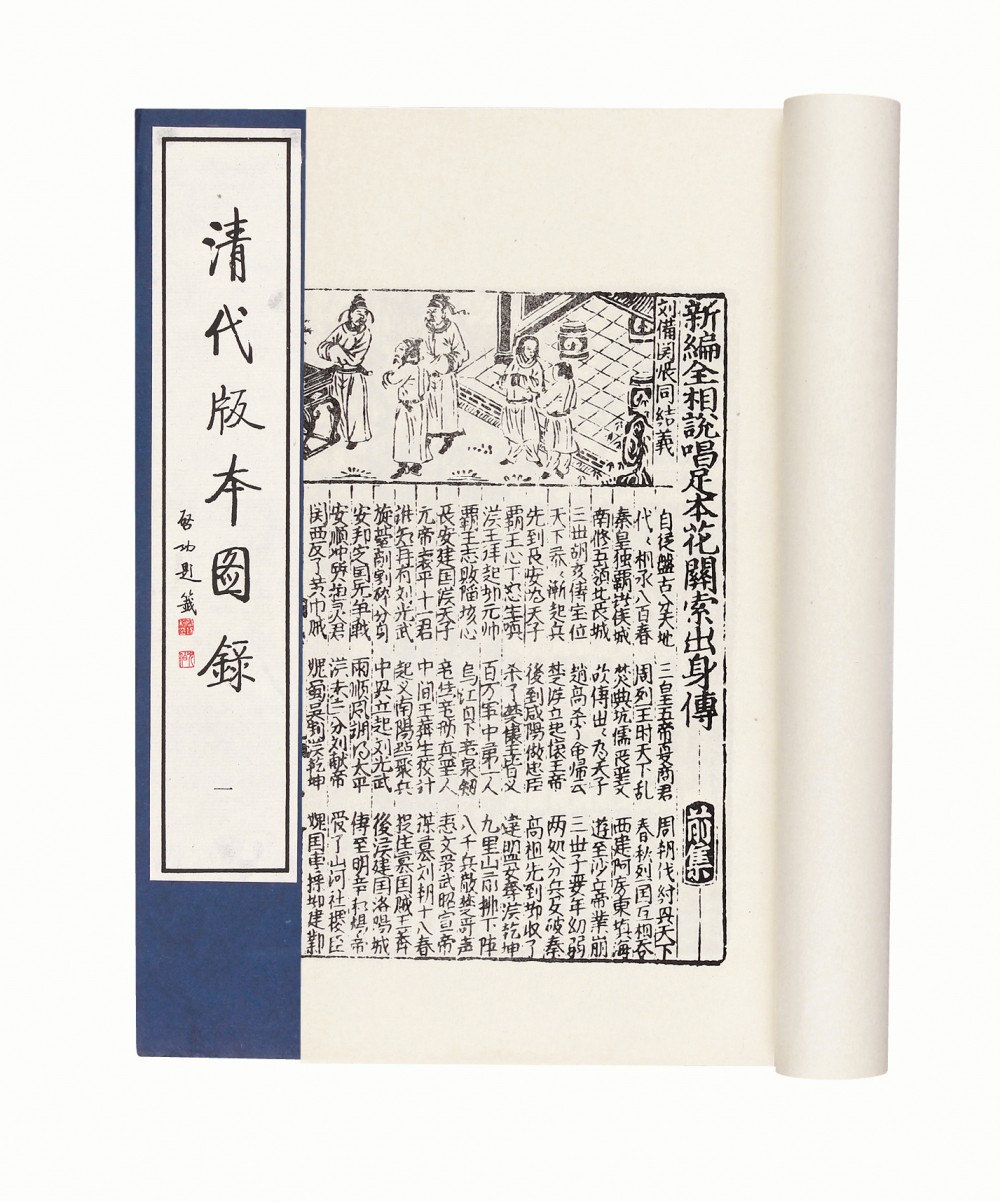 清代版本图錄
一
啓功題籤
新編全相說唱足本花關索出身傳
前集
刘備関張同結義
自從盤古分天地 三皇五帝夏商君 周朝伐紂興天下
代〻相承八百春 周烈王时天下乱 春秋列国互相吞
秦皇独覇諸侯城 焚典坑儒丧盡文 西建阿房東填海
南修五嶺北長城 欲傳世〻為天子 遊至沙丘帝業崩
三世胡亥傳宝位 趙高杀了命歸云 三世子嬰年幼弱
天下荒〻漸起兵 楚漢立起懐王帝 两处分兵去破秦
先到長安为天子 後到咸陽做忠臣 高祖先到都收了
覇王心下怒生嗔 杀了楚懐王皆义 違盟要奪漢乾坤
漢王拜起 元帅 百万軍中第一人 九里山前排下陣
覇王志敗 垓心 烏江自下 八千兵散楚哥声
長安建国漢天子 惠文景武昭宣帝
元帝哀平十一君 中间王莽生奸計 謀篡刘朝十八春
誰知再有刘光武 起义南陽 聚兵 捉住篡国贼王莽
臺剮割碎分身 中興立起刘光武 後漢建国洛陽城
安邦定国无争戰 雨順風調乃太平 傳至明章和殤帝
安順冲質桓灵君 漢末三分刘献帝 受了山河社稷臣
関西反了黄巾贼 魏蜀吴割漢乾坤 魏国曹操都建鄴